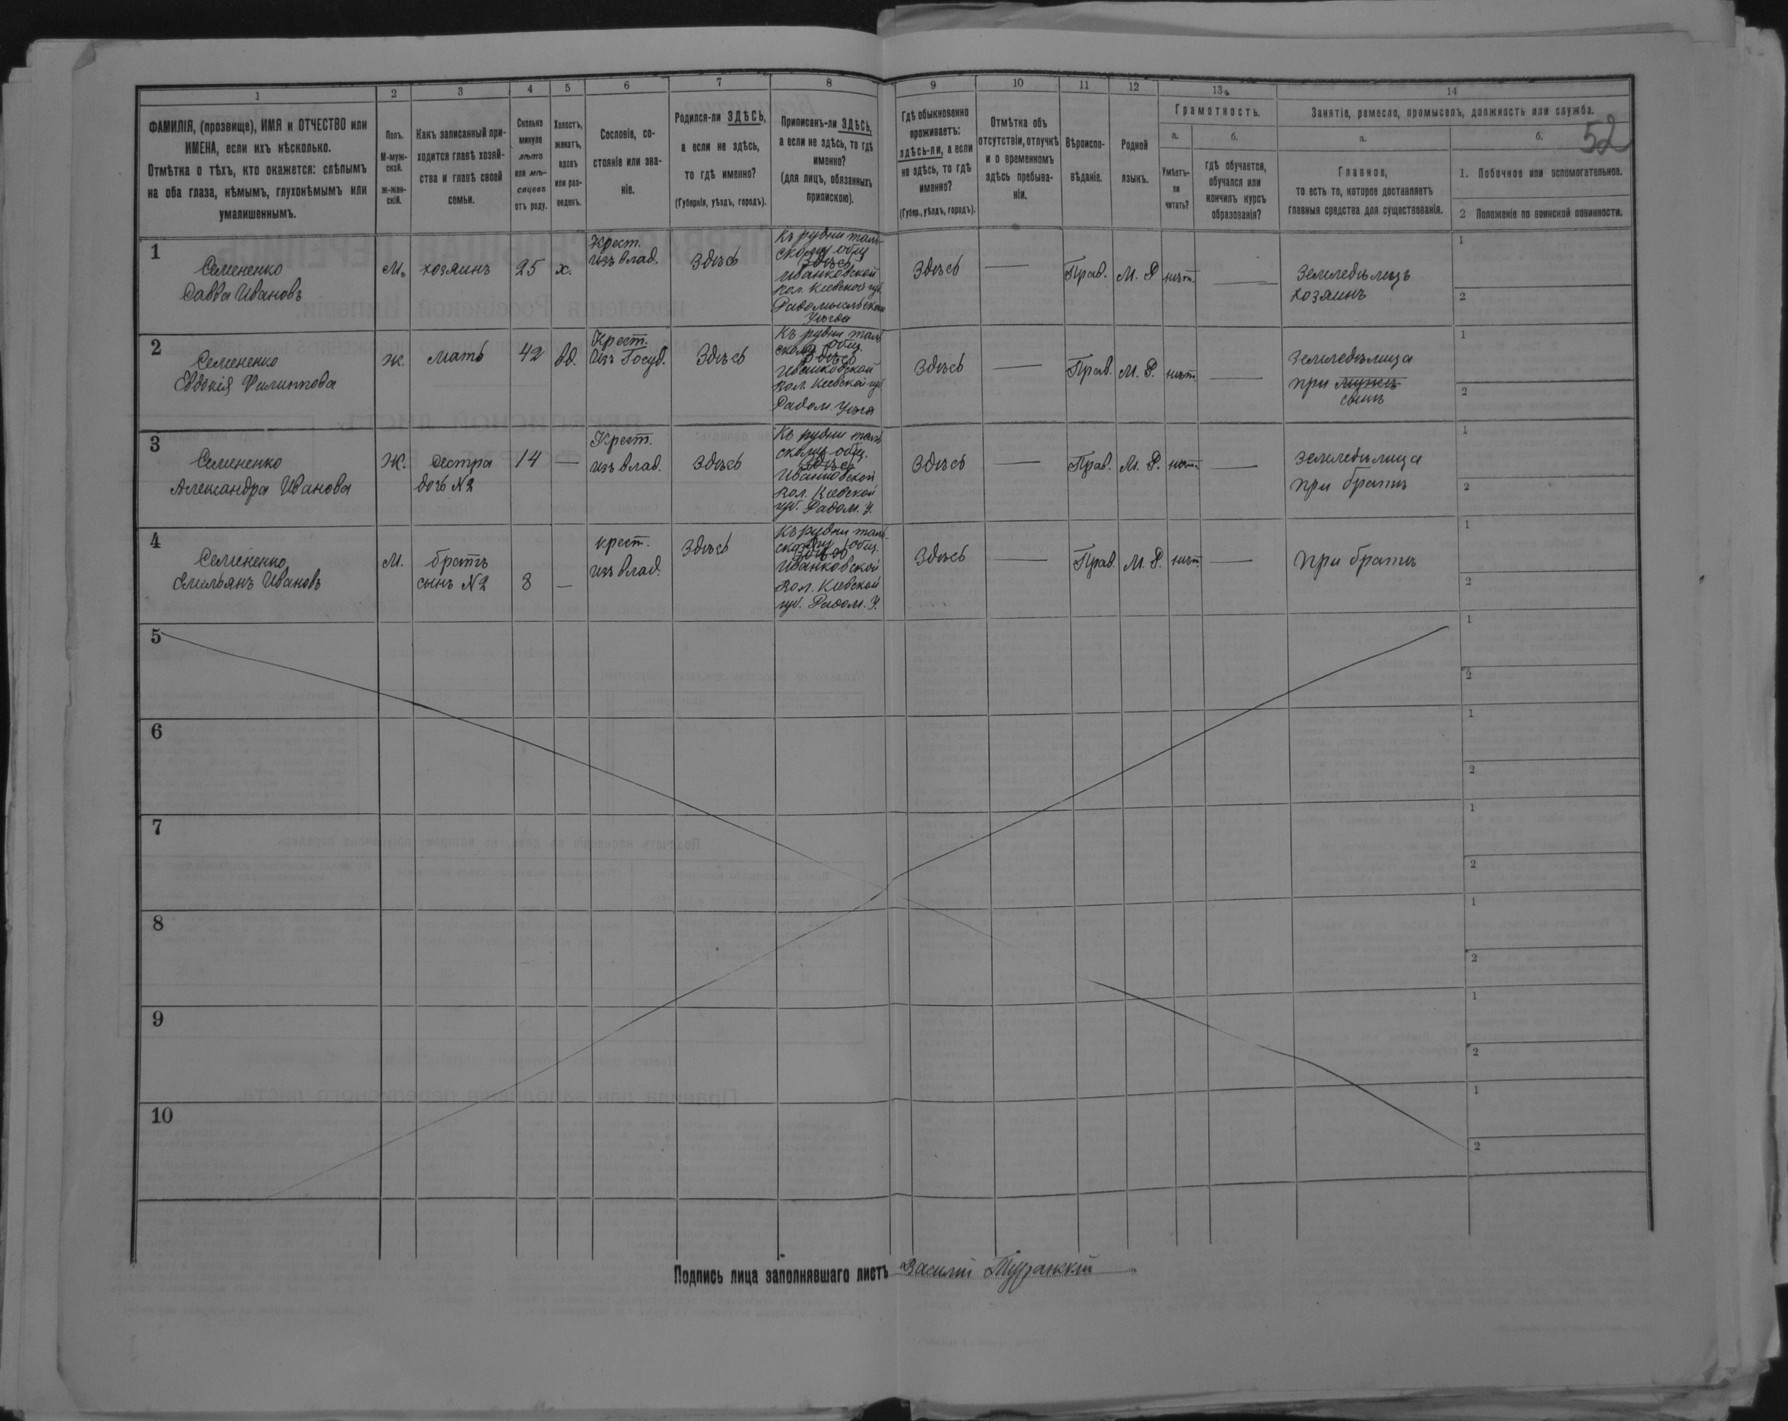 1 2 3 4 5 6 7 8 9 10 11 12 13 14
52
ФАМИЛІЯ, (прозвище), ИМЯ и ОТЧЕСТВО или
ИМЕНА, если ихъ нѣсколько.
Отмѣтка о тѣхъ, кто окажется: слѣпымъ
на оба глаза, нѣмымъ, глухонѣмымъ или
умалишеннымъ.
Полъ.
М-муж-
ской.
ж-жен-
скій.
Какъ записанный при-
ходится главѣ хозяй-
ства и главѣ своей
семьи.
Сколько
минуло
лѣтъ
или мѣ-
сяцевъ
отъ роду.
Холостъ,
женатъ,
вдовъ
или раз-
веденъ.
Сословіе, со-
стояніе или зва-
ніе.
Родился-ли ЗДѢСЬ,
а если не здѣсь,
то гдѣ именно?
(Губернія, уѣздъ, городъ).
Приписанъ-ли ЗДѢСЬ,
а если не здѣсь, то гдѣ
именно?
(для лицъ, обязанныхъ
припискою).
Гдѣ обыкновенно
проживаетъ:
здѣсь-ли, а если
не здѣсь, то гдѣ
именно?
(Губер., уѣздъ, городъ).
Отмѣтка объ
отсутствіи, отлучкѣ
и о временномъ
здѣсь пребыва-
ніи.
Вѣроиспо-
вѣданіе.
Родной
языкъ.
Грамотность.
а.
Умѣетъ-
ли
читать?
б.
гдѣ обучается,
обучался или
кончилъ курсъ
образованія?
Занятіе, ремесло, промыселъ, должность или служба.
а.
Главное,
то есть то, которое доставляетъ
главныя средства для существованія.
б.
1. Побочное или вспомогательное.
2 Положеніе по воинской повинности.
1
Семененко
Савва Ивановъ
М.
хозяинъ
25
х.
Крест.
изъ влад.
Здѣсь
Къ рудни таль-
скому общ
Здѣсь
Иванковской
вол. Кіевской губ
Радомысльскаго
Уѣзда
Здѣсь
—
Прав.
М. Р.
нѣтъ
—
Земледѣлецъ
хозяинъ
1
2
2
Семененко
Евдокія Филиппова
Ж.
мать
42
вд.
Крест.
изъ Госуд.
Здѣсь
Къ рудни таль
скому общ.
Здѣсь
Иванковской
вол. Кіевской губ
Радом. Уѣзда
Здѣсь
—
Прав.
М. Р.
нѣтъ
—
Земледѣлица
при мужѣ
сынѣ
1
2
3
Семененко
Александра Иванова
Ж.
сестра
дочь №2
14
—
Крест.
изъ влад.
Здѣсь
Къ рудни таль
скому общ.
Здѣсь
Иванковской
вол. Кіевской
губ. Радом. У.
Здѣсь
—
Прав.
М. Р.
нѣтъ
—
Земледѣлица
при братѣ
1
2
4
Семененко
Емельянъ Ивановъ
М.
братъ
сынъ №2
8
—
крест.
изъ влад.
Здѣсь
Къ рудни таль
скому общ.
Здѣсь
Иванковской
вол. Кіевской
губ. Радом. У.
Здѣсь
—
Прав.
М. Р.
нѣтъ
—
При братѣ
1
2
5
1
2
6
1
2
7
1
2
8
1
2
9
1
2
10
1
2
Подпись лица заполнявшаго листъ Василий